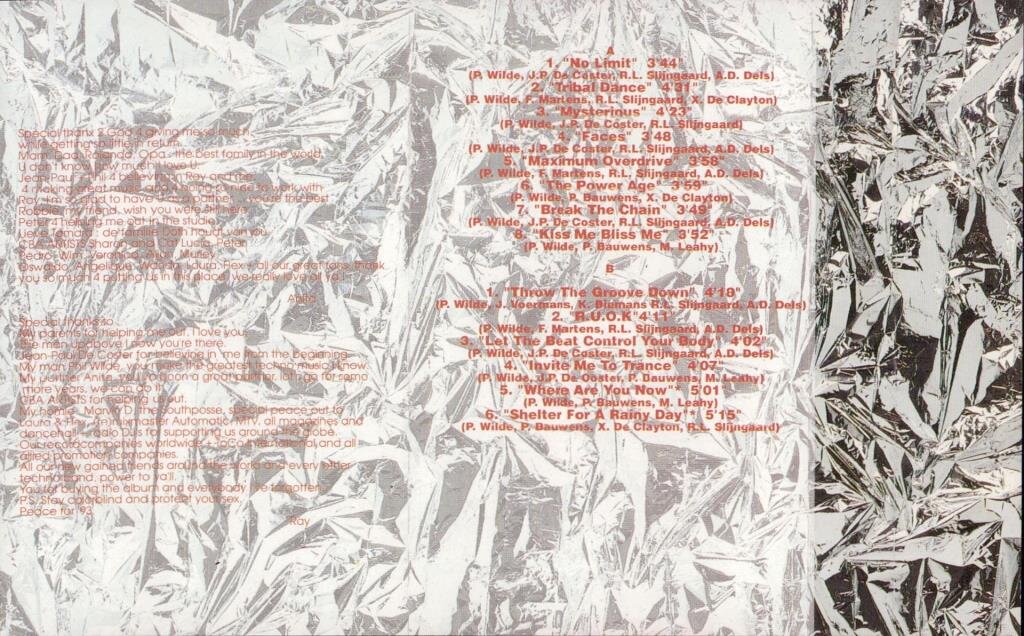 Special thanx 2 God 4 giving me so much,
while getting so little in return.
Mam, Dad, Rolanda, Opa : the best family in the world,
U don't know how much I love U
Jean-Paul + Phil 4 believing in Ray and me,
4 making great music and 4 being so nice to work with
Ray, I'm so glad to have U as a partner, you're the best
Robbie, my friend, wish you were still here
Peter 4 helping me out in the studio
Lieve Tamara : de familie Doth houdt van jou
CBA ARTISTS Sharon and Cat Lucia, Peter
Pedro, Wim, Veronica,
Oswaldo, Angelique, Wanda, Laura, Hex + all our great fans, thank
you so much 4 putting us in this place, we really love all ya!!
Anita
Special thanks to:
My parents for helping me out, I love you.
The man upabove I now you're there.
Jean Paul De Coster for believing in me from the beginning.
My man Phil Wilde, you make the greatest techno music I know.
My partner Anita, you're a great partner, let's go for some
more years, we can do it.
CBA ARTISTS for helping us out.
My homie Marvin the southposse, special peace out to
Laura & Hex, master Automatic, MTV, all magazines and
dancehall radio DJ's for supporting us around the globe.
Our recordcompanies worldwide, international, and all
allied promotion companies.
All our new gained friends around the world and every other
techno band, power to ya'll.
You for buying the album and everybody I've forgotten.
P.S. Stay colorblind and protect your sex.
Peace for '93
Ray
A
1. "No Limit" 3'44"
(P. Wilde, J.P. De Coster, R.L. Slijngaard, A.D. Dels)
2. "Tribal Dance" 4'31"
(P. Wilde, F. Martens, R.L. Slijngaard, X. De Clayton)
3. "Mysterious" 4'23"
(P. Wilde, J.P. De Coster, R.L. Slijngaard)
4. "Faces" 3'48
(P. Wilde, J.P. De Coster, R.L. Slijngaard, A.D. Dels)
5. "Maximum Overdrive" 3'58"
(P. Wilde, F. Martens, R.L. Slijngaard, A.D. Dels)
6. "The Power Age" 3'59"
(P. Wilde, P. Bauwens, X. De Clayton)
7. "Break The Chain" 3'49"
(P. Wilde, J.P. De Coster, R.L. Slijngaard, A.D. Dels)
8. "Kiss Me Bliss Me" 3'52"
(P. Wilde, P. Bauwens, M. Leahy)
B
1. "Throw The Groove Down" 4'18"
(P. Wilde, J. Voermans, K. Biemans R.L. Slijngaard, A.D. Dels)
2. "R.U.O.K" 4'11"
(P. Wilde, F. Martens, R.L. Slijngaard, A.D. Dels)
3. "Let The Beat Control Your Body" 4'02"
(P. Wilde, J.P. De Coster, R.L. Slijngaard, A.D. Dels)
4. "Invite Me To Trance" 4'07"
(P. Wilde, J.P. De Coster, P. Bauwens, M. Leahy)
5. "Where Are You Now"* 5'01"
(P. Wilde, P. Bauwens, M. Leahy)
6. "Shelter For A Rainy Day"* 5'15"
(P. Wilde, P. Bauwens, X. De Clayton, R.L. Slijngaard)